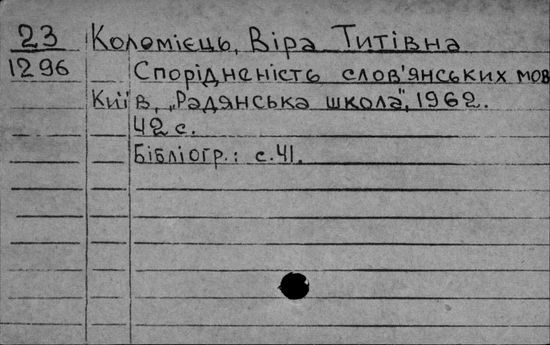 23 Коломієць, Віра Титівна
1296 Спорідненість слов'янських мов
Київ, „Радянська школа", 1962.
42 с.
Бібліогр.: с.41.